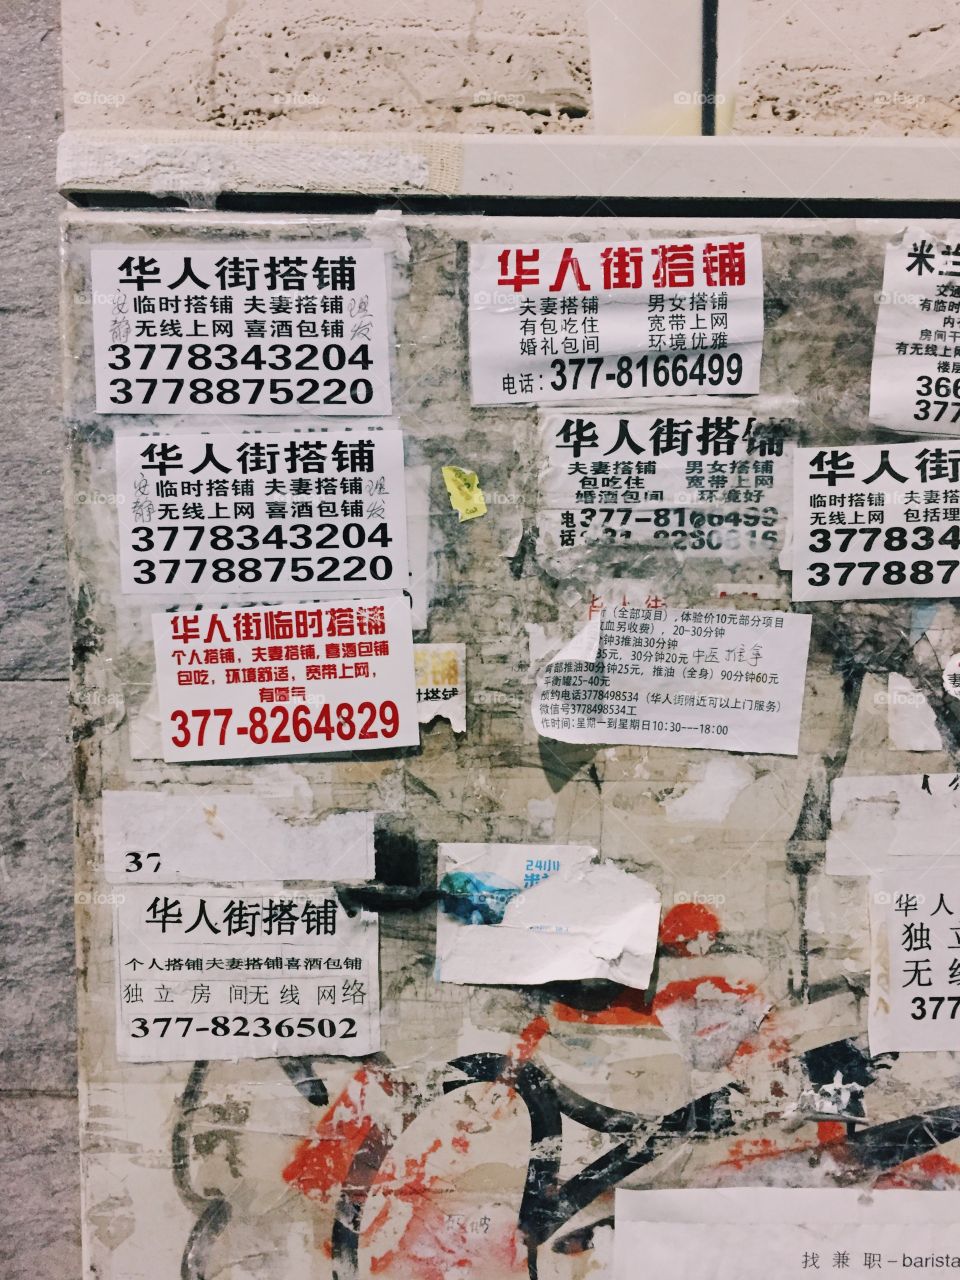 华人街搭铺
临时搭铺 夫妻搭铺
无线上网 喜酒包铺
安静
3778343204
3778875220
华人街搭铺
夫妻搭铺 男女搭铺
有包吃住 宽带上网
婚礼包间 环境优雅
电话：377-8166499
米兰
交通
有临时
房间干
有无线上网
楼层
366
377
华人街搭铺
临时搭铺 夫妻搭铺
无线上网 喜酒包铺
安静
3778343204
3778875220
华人街搭铺
夫妻搭铺 男女搭铺
包吃住 宽带上网
婚酒包间 环境好
电话 377-8166499
华人街
临时搭铺 夫妻搭
无线上网 包括理
3778834
377887
华人街临时搭铺
个人搭铺，夫妻搭铺，喜酒包铺
包吃，环境舒适，宽带上网，
有暖气
377-8264829
搭铺
（全部项目），体验价10元部分项目
血另收费），20-30分钟
钟3推油30分钟
35元，30分钟20元 中医推拿
背部推油30分钟25元，推油（全身）90分钟60元
平衡罐25-40元
预约电话3778498534（华人街附近可以上门服务）
微信号3778498534工
作时间：星期一到星期日10:30---18:00
37
24小
华人街搭铺
个人搭铺夫妻搭铺喜酒包铺
独立房间无线网络
377-8236502
华人
独立
无线
377
找兼职－barista